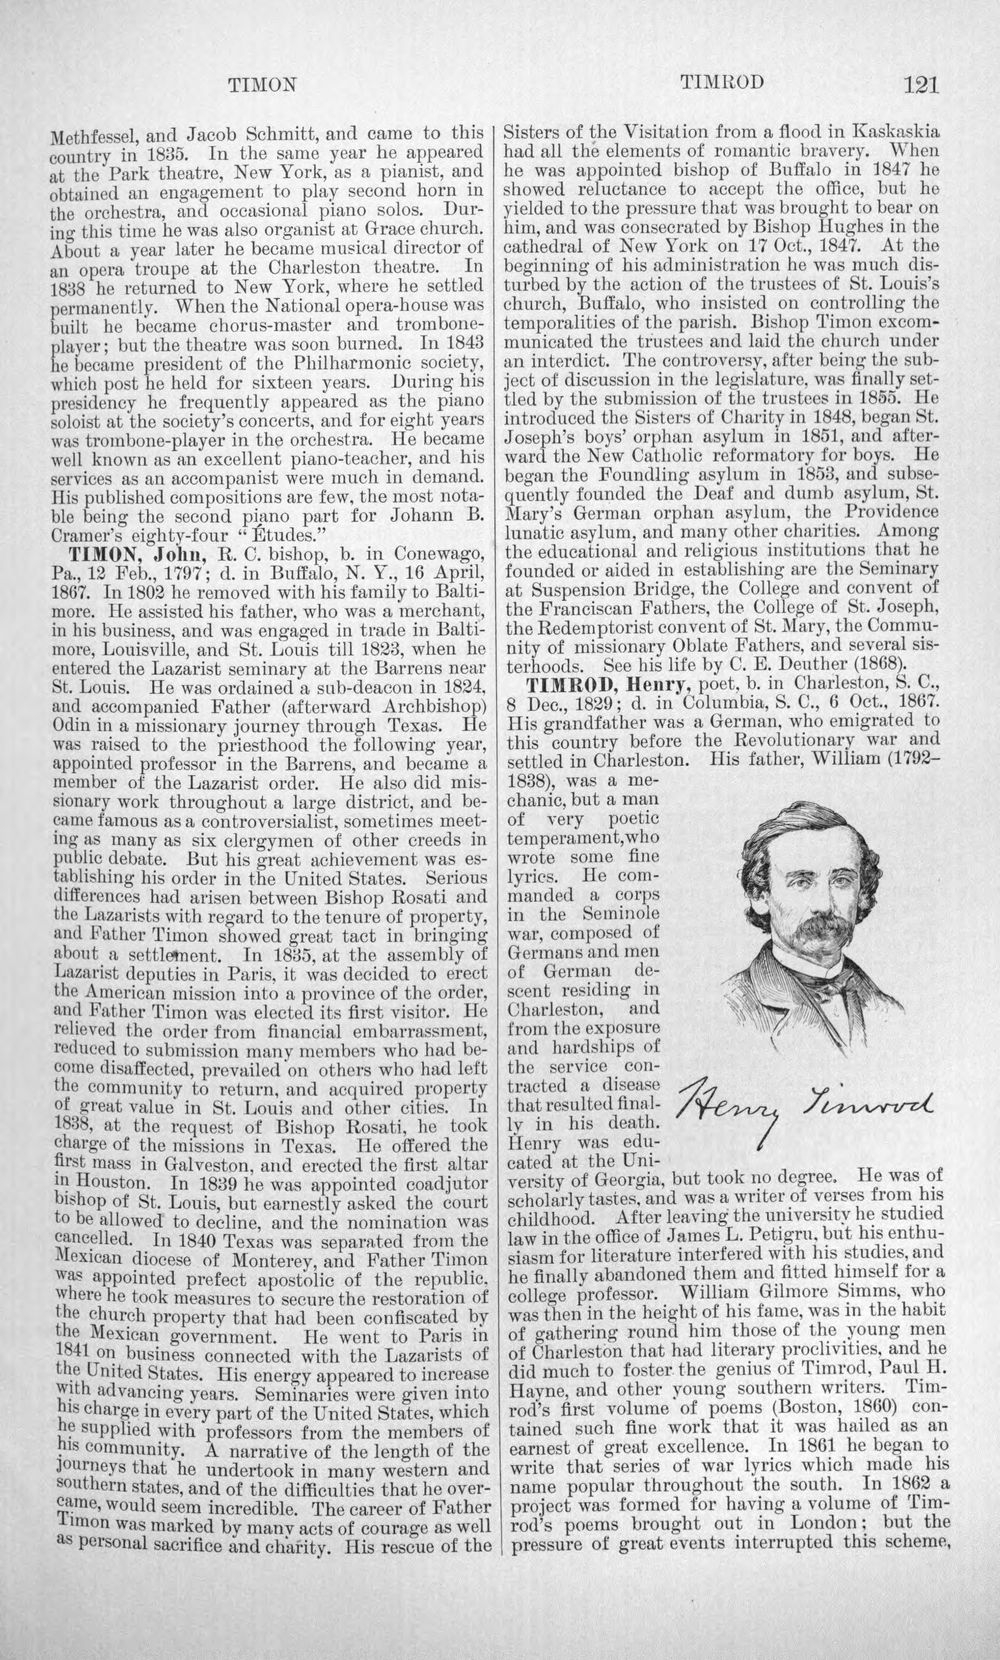 TIMON
TIMROD
121
Methfessel, and Jacob Schmitt, and came to this
country in 1835. In the same year he appeared
at the Park theatre, New York, as a pianist, and
obtained an engagement to play second horn in
the orchestra, and occasional piano solos. Dur-
ing this time he was also organist at Grace church.
About a year later he became musical director of
an opera troupe at the Charleston theatre. In
1838 he returned to New York, where he settled
permanently. When the National opera-house was
built he became chorus-master and trombone-
player; but the theatre was soon burned. In 1843
he became president of the Philharmonic society,
which post he held for sixteen years. During his
presidency he frequently appeared as the piano
soloist at the society's concerts, and for eight years
was trombone-player in the orchestra. He became
well known as an excellent piano-teacher, and his
services as an accompanist were much in demand.
His published compositions are few, the most nota-
ble being the second piano part for Johann B.
Cramer's eighty-four “Études.”
TIMON, John, R. C. bishop, b. in Conewago,
Pa., 12 Feb., 1797; d. in Buffalo, N. Y., 16 April,
1867. In 1802 he removed with his family to Balti-
more. He assisted his father, who was a merchant,
in his business, and was engaged in trade in Balti-
more, Louisville, and St. Louis till 1823, when he
entered the Lazarist seminary at the Barrens near
St. Louis. He was ordained a sub-deacon in 1824,
and accompanied Father (afterward Archbishop)
Odin in a missionary journey through Texas. He
was raised to the priesthood the following year,
appointed professor in the Barrens, and became a
member of the Lazarist order. He also did mis-
sionary work throughout a large district, and be-
came famous as a controversialist, sometimes meet-
ing as many as six clergymen of other creeds in
public debate. But his great achievement was es-
tablishing his order in the United States. Serious
differences had arisen between Bishop Rosati and
the Lazarists with regard to the tenure of property,
and Father Timon showed great tact in bringing
about a settlement. In 1835, at the assembly of
Lazarist deputies in Paris, it was decided to erect
the American mission into a province of the order,
and Father Timon was elected its first visitor. He
relieved the order from financial embarrassment,
reduced to submission many members who had be-
come disaffected, prevailed on others who had left
the community to return, and acquired property
of great value in St. Louis and other cities. In
1838, at the request of Bishop Rosati, he took
charge of the missions in Texas. He offered the
first mass in Galveston, and erected the first altar
in Houston. In 1839 he was appointed coadjutor
bishop of St. Louis, but earnestly asked the court
to be allowed to decline, and the nomination was
cancelled. In 1840 Texas was separated from the
Mexican diocese of Monterey, and Father Timon
was appointed prefect apostolic of the republic,
where he took measures to secure the restoration of
the church property that had been confiscated by
the Mexican government. He went to Paris in
1841 on business connected with the Lazarists of
the United States. His energy appeared to increase
with advancing years. Seminaries were given into
his charge in every part of the United States, which
he supplied with professors from the members of
his community. A narrative of the length of the
journeys that he undertook in many western and
southern states, and of the difficulties that he over-
came, would seem incredible. The career of Father
Timon was marked by many acts of courage as well
as personal sacrifice and charity. His rescue of the
Sisters of the Visitation from a flood in Kaskaskia
had all the elements of romantic bravery. When
he was appointed bishop of Buffalo in 1847 he
showed reluctance to accept the office, but he
yielded to the pressure that was brought to bear on
him, and was consecrated by Bishop Hughes in the
cathedral of New York on 17 Oct., 1847. At the
beginning of his administration he was much dis-
turbed by the action of the trustees of St. Louis's
church, Buffalo, who insisted on controlling the
temporalities of the parish. Bishop Timon excom-
municated the trustees and laid the church under
an interdict. The controversy, after being the sub-
ject of discussion in the legislature, was finally set-
tled by the submission of the trustees in 1855. He
introduced the Sisters of Charity in 1848, began St.
Joseph's boys' orphan asylum in 1851, and after-
ward the New Catholic reformatory for boys. He
began the Foundling asylum in 1853, and subse-
quently founded the Deaf and dumb asylum, St.
Mary's German orphan asylum, the Providence
lunatic asylum, and many other charities. Among
the educational and religious institutions that he
founded or aided in establishing are the Seminary
at Suspension Bridge, the College and convent of
the Franciscan Fathers, the College of St. Joseph,
the Redemptorist convent of St. Mary, the Commu-
nity of missionary Oblate Fathers, and several sis-
terhoods. See his life by C. E. Deuther (1868).
TIMROD, Henry, poet, b. in Charleston, S. C.,
8 Dec., 1829; d. in Columbia, S. C., 6 Oct., 1867.
His grandfather was a German, who emigrated to
this country before the Revolutionary war and
settled in Charleston. His father, William (1792–
1838), was a me-
chanic, but a man
of very poetic
temperament, who
wrote some fine
lyrics. He com-
manded a corps
in the Seminole
war, composed of
Germans and men
of German de-
scent residing in
Charleston, and
from the exposure
and hardships of
the service con-
tracted a disease
that resulted final-
ly in his death.
Henry was edu-
cated at the Uni-
Henry Timrod
versity of Georgia, but took no degree. He was of
scholarly tastes, and was a writer of verses from his
childhood. After leaving the university he studied
law in the office of James L. Petigru, but his enthu-
siasm for literature interfered with his studies, and
he finally abandoned them and fitted himself for a
college professor. William Gilmore Simms, who
was then in the height of his fame, was in the habit
of gathering round him those of the young men
of Charleston that had literary proclivities, and he
did much to foster the genius of Timrod, Paul H.
Hayne, and other young southern writers. Tim-
rod's first volume of poems (Boston, 1860) con-
tained such fine work that it was hailed as an
earnest of great excellence. In 1861 he began to
write that series of war lyrics which made his
name popular throughout the south. In 1862 a
project was formed for having a volume of Tim-
rod's poems brought out in London; but the
pressure of great events interrupted this scheme,